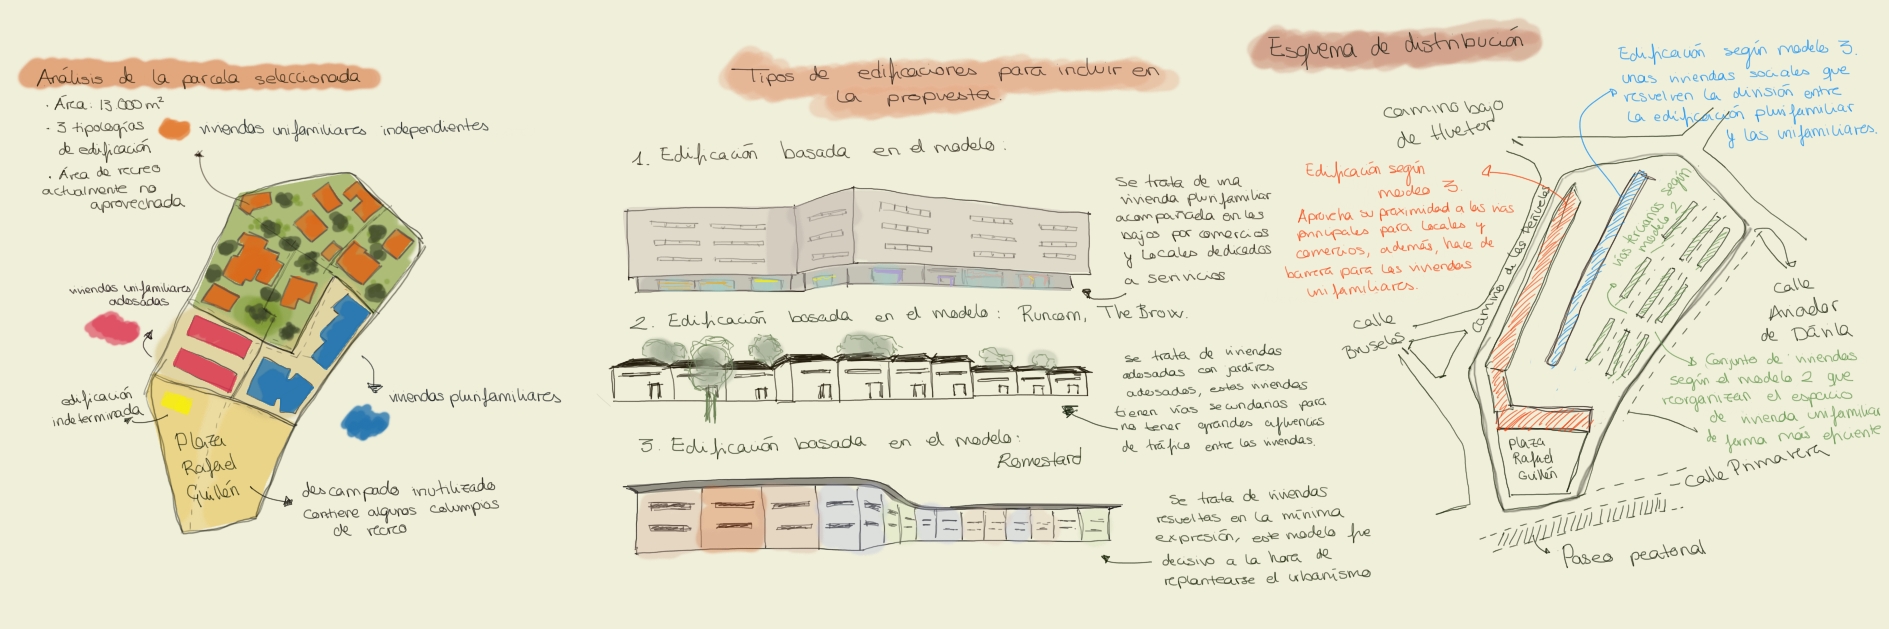 Análisis de la parcela seleccionada
· Área: 13.000 m²
· 3 tipologías
de edificación
· Área de recreo
actualmente no
aprovechada
viviendas unifamiliares independientes
viviendas unifamiliares
adosadas
edificación
indeterminada
viviendas plurifamiliares
Plaza
Rafael
Guillén
descampado inutilizado
contiene algunos columpios
de recreo
Tipos de edificaciones para incluir en
la propuesta.
1. Edificación basada en el modelo:
Se trata de una
vivienda plurifamiliar
acompañada en los
bajos por comercios
y locales dedicados
a servicios
2. Edificación basada en el modelo: Runcorn, The Brow.
se trata de viviendas
adosadas con jardines
adosados, estas viviendas
tienen vías secundarias para
no tener grandes afluencias
de tráfico entre las viviendas.
3. Edificación basada en el modelo:
Romestard
Se trata de viviendas
resueltas en la mínima
expresión, este modelo fue
decisivo a la hora de
replantearse el urbanismo
Esquema de distribución
Edificación según modelo 3.
unas viviendas sociales que
resuelven la división entre
la edificación plurifamiliar
y las unifamiliares.
camino bajo
de Huetor
Edificación según
modelo 3.
Aprovecha su proximidad a las vías
principales para locales y
comercios, además, hace de
barrera para las viviendas
unifamiliares.
Camino de las Peñuelas
vías terciarias según
modelo 2
calle
Bruselas
calle
Amador
de Dánla
Conjunto de viviendas
según el modelo 2 que
reorganizan el espacio
de vivienda unifamiliar
de forma más eficiente
Plaza
Rafael
Guillén
calle Primavera
Paseo peatonal